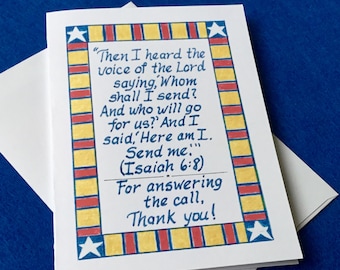 "Then I heard the
voice of the Lord
saying, 'Whom
shall I send?
And who will go
for us?' And I
said, 'Here am I.
Send me.'"
(Isaiah 6:8)
For answering
the call,
Thank you!